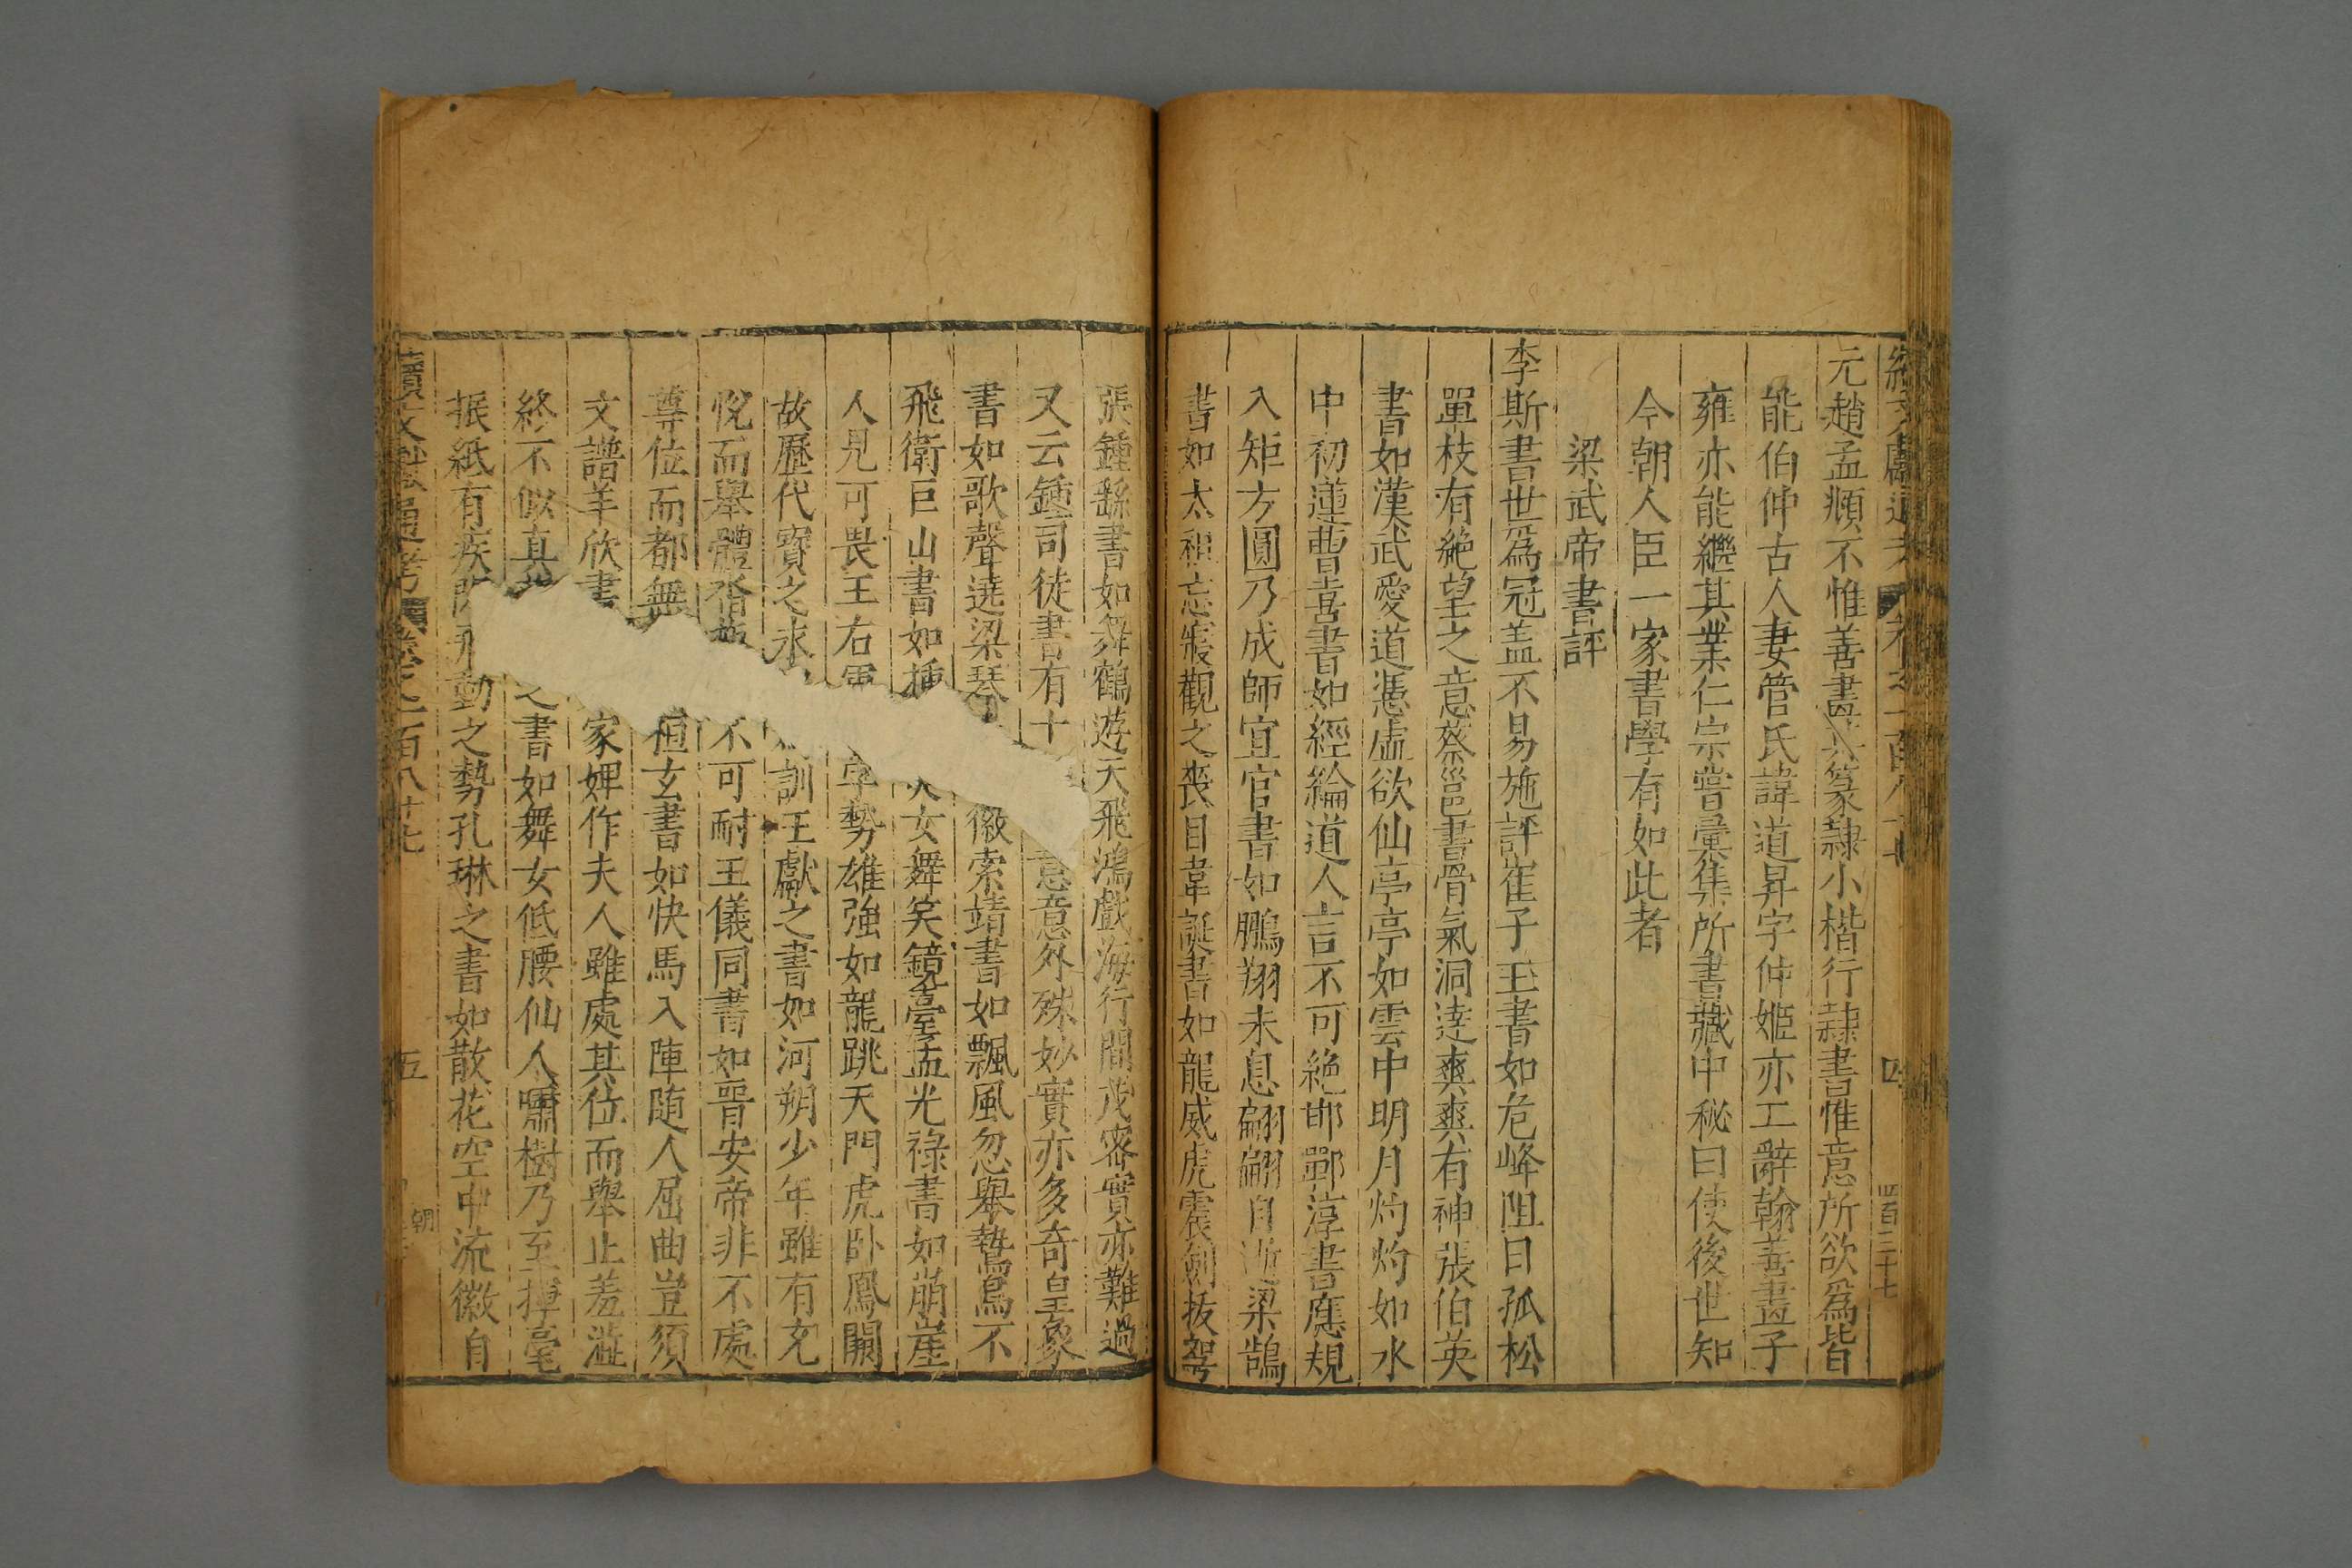 元趙孟頫不惟善書其篆隷小楷行隷書惟意所欲爲皆
能伯仲古人妻管氏諱道昇字仲姬亦工辭翰善畫子
雍亦能繼其業仁宗嘗彙集所書藏中秘曰使後世知
今朝人臣一家書學有如此者
梁武帝書評
李斯書世爲冠盖不易施評崔子玉書如危峰阻日孤松
單枝有絶望之意蔡邕書骨氣洞達爽爽有神張伯英
書如漢武愛道憑虛欲仙亭亭如雲中明月灼灼如水
中初蓮曹喜書如經綸道人言不可絶邯鄲淳書應規
入矩方圓乃成師宜官書如鵬翔未息翩翩自逝梁鵠
書如太祖忘寢觀之喪目韋誕書如龍威虎震劒拔弩
張鍾繇書如舞鶴遊天飛鴻戲海行間茂密實亦難過
又云鍾司徒書有十意意外殊妙實亦多奇皇象
書如歌聲遶梁琴徽索靖書如飄風忽舉鷙鳥不
飛衛巨山書如揷女舞笑鏡臺孟光祿書如崩崖
人見可畏王右軍勢雄強如龍跳天門虎卧鳳闕
故歷代寶之永訓王獻之書如河朔少年雖有充
悅而舉體不可耐王儀同書如晋安帝非不處
尊位而都無桓玄書如快馬入陣隨人屈曲豈須
文譜羊欣書家婢作夫人雖處其位而舉止羞澁
終不似真之書如舞女低腰仙人嘯樹乃至揮毫
抿紙有疾動之勢孔琳之書如散花空中流徽自
續文獻通考卷之一百八十七
五